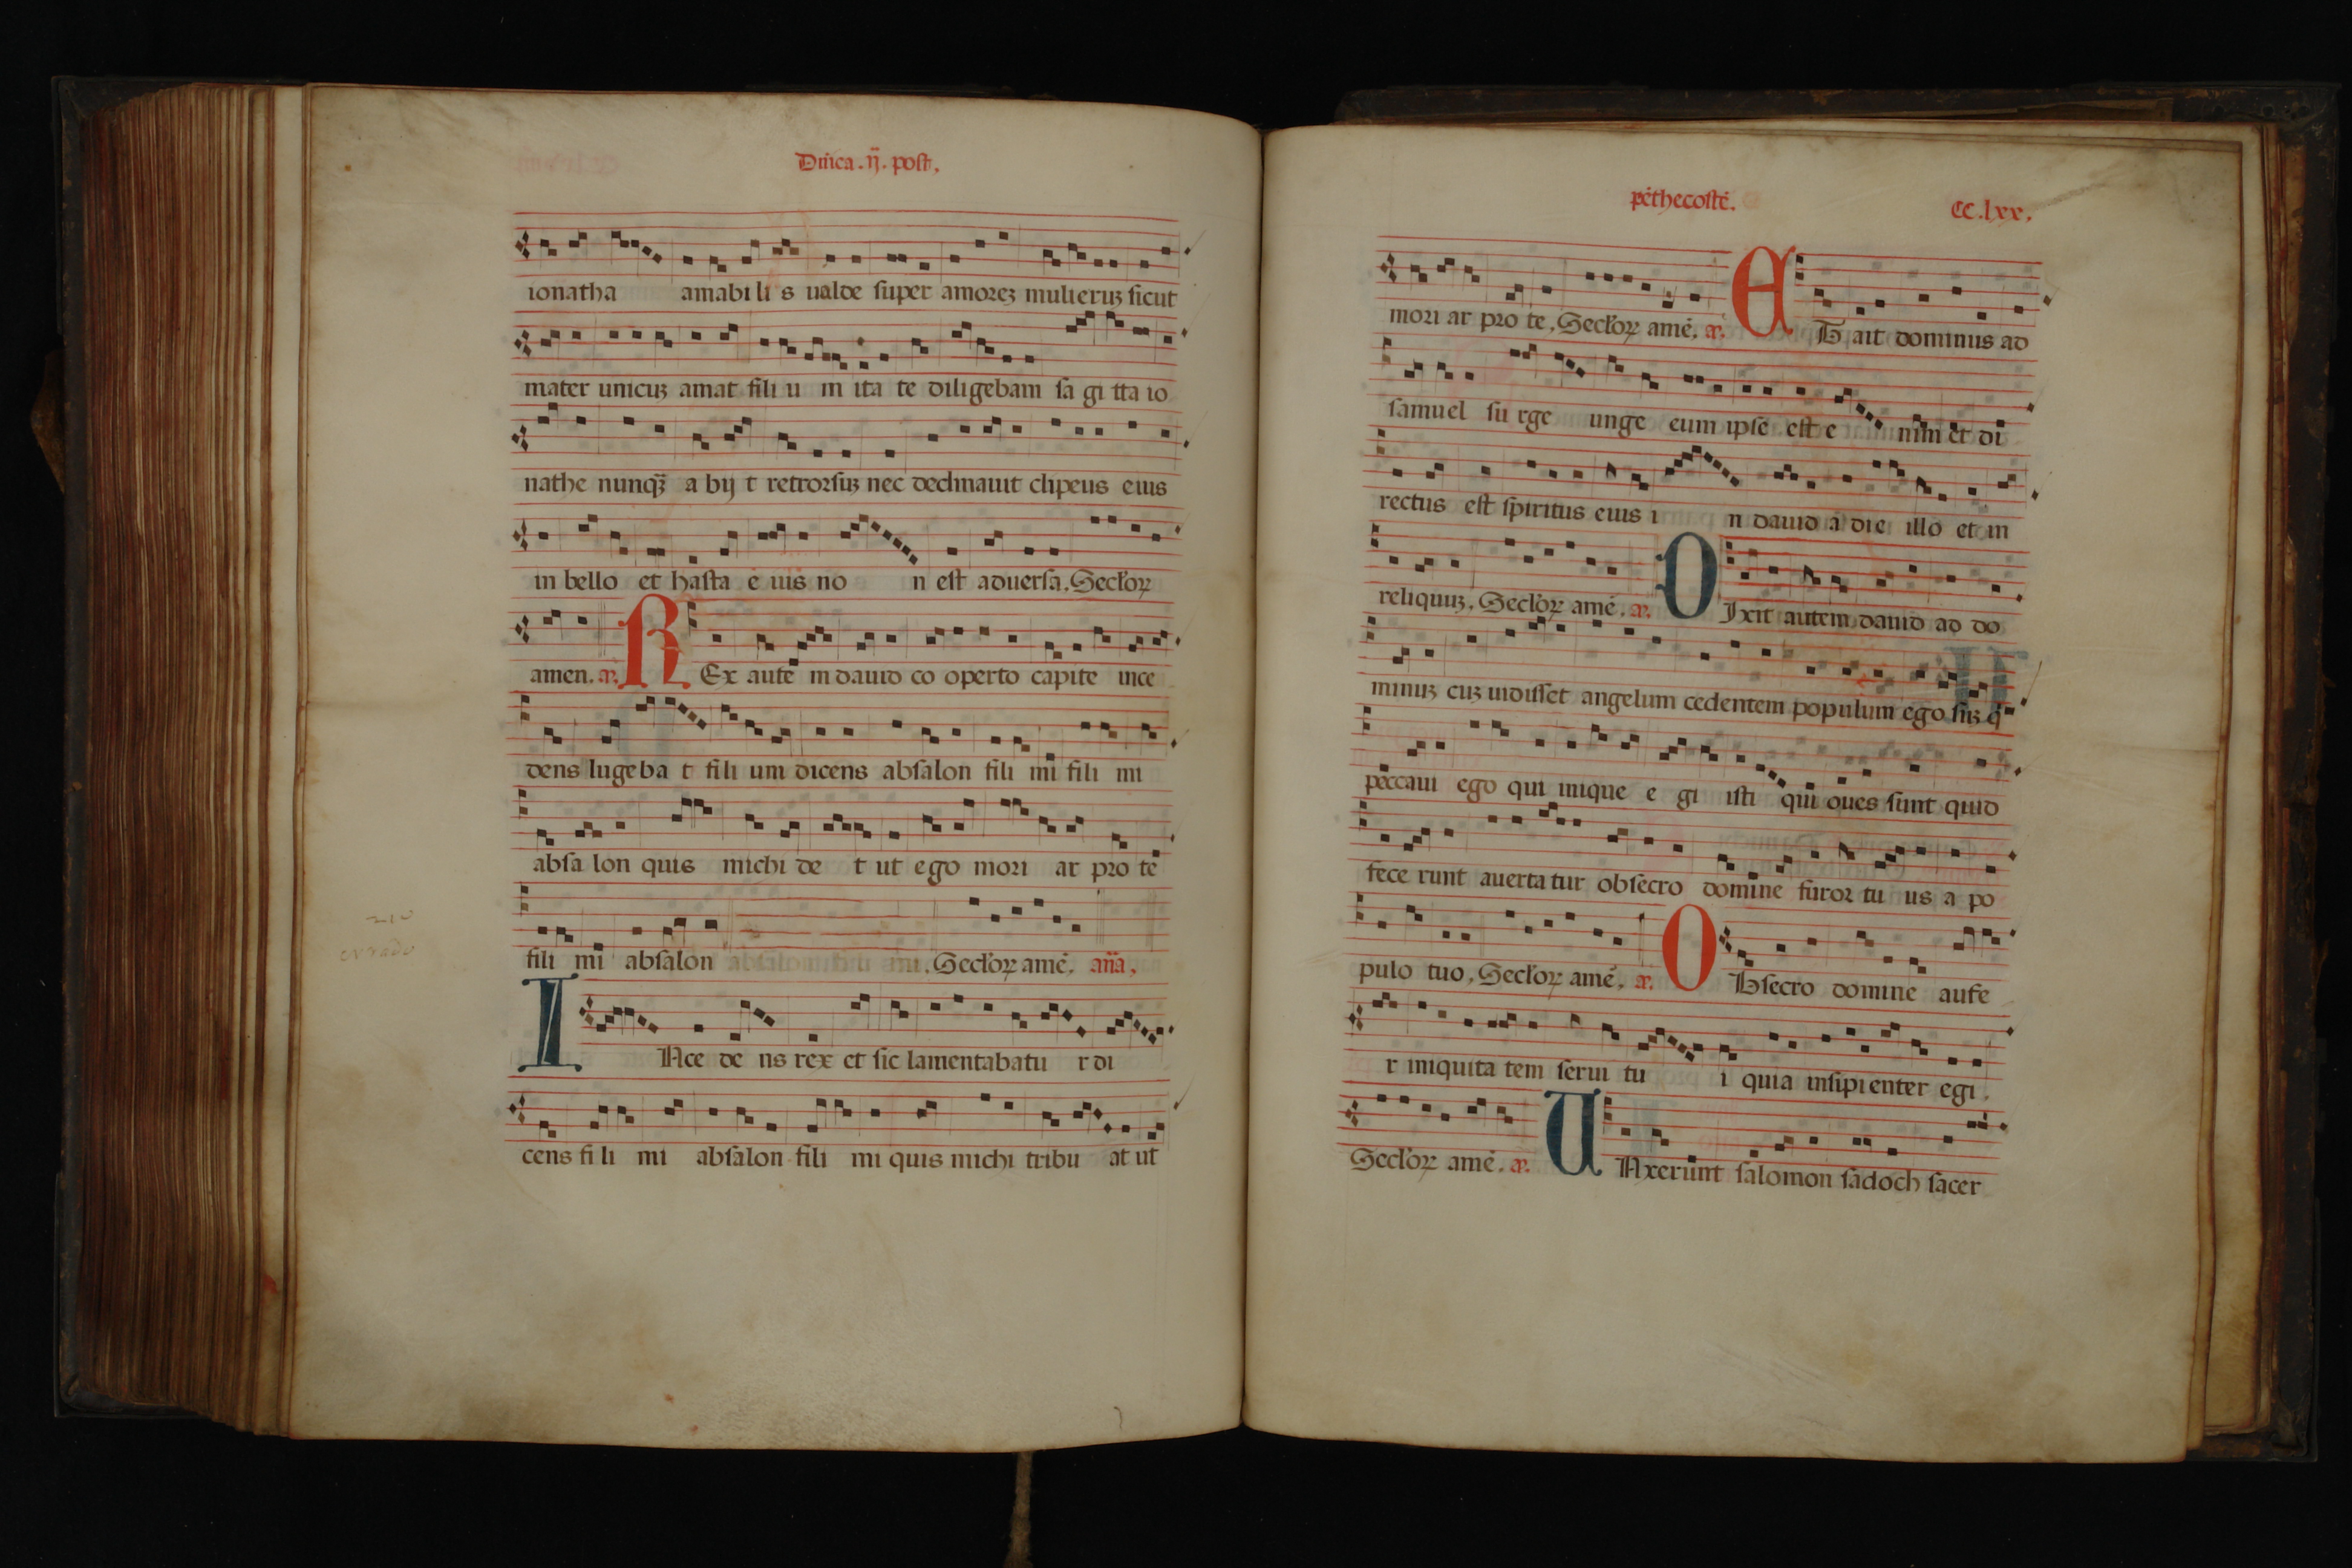 Dñica .ij. post,
ionatha amabili s ualde super amoreꝫ mulieruꝫ sicut
mater unicuꝫ amat fili u m ita te diligebam sa gi tta io
nathe nunqꝫ a bij t retrorsuꝫ nec declinauit clipeus eius
in bello et hasta e ius no n est aduersa. Seclorꝝ
amen. a. R Ex aute m dauid co operto capite ince
dens lugeba t fili um dicens absalon fili mi fili mi
absa lon quis michi de t ut ego mori ar pro te
fili mi absalon . Seclorꝝ amē. aña,
I Nce de ns rex et sic lamentabatu r di
cens fi li mi absalon fili mi quis michi tribu at ut
pēthecostē. CC.lxx.
mori ar pro te, Seclorꝝ amē. a. E T ait dominus ad
samuel su rge unge eum ipse est e nim et di
rectus est spiritus eius i n dauid a die illo et in
reliquuꝫ. Seclorꝝ amē. a. D Ixit autem dauid ad do
minuꝫ cuꝫ uidisset angelum cedentem populum ego suꝫ q
peccaui ego qui inique e gi isti qui oues sunt quid
fece runt auerta tur obsecro domine furor tu us a po
pulo tuo, Seclorꝝ amē. a. O Bsecro domine aufe
r iniquita tem serui tu i quia insipienter egi.
Seclorꝝ amē. a. U Nxerunt salomon sadoch sacer